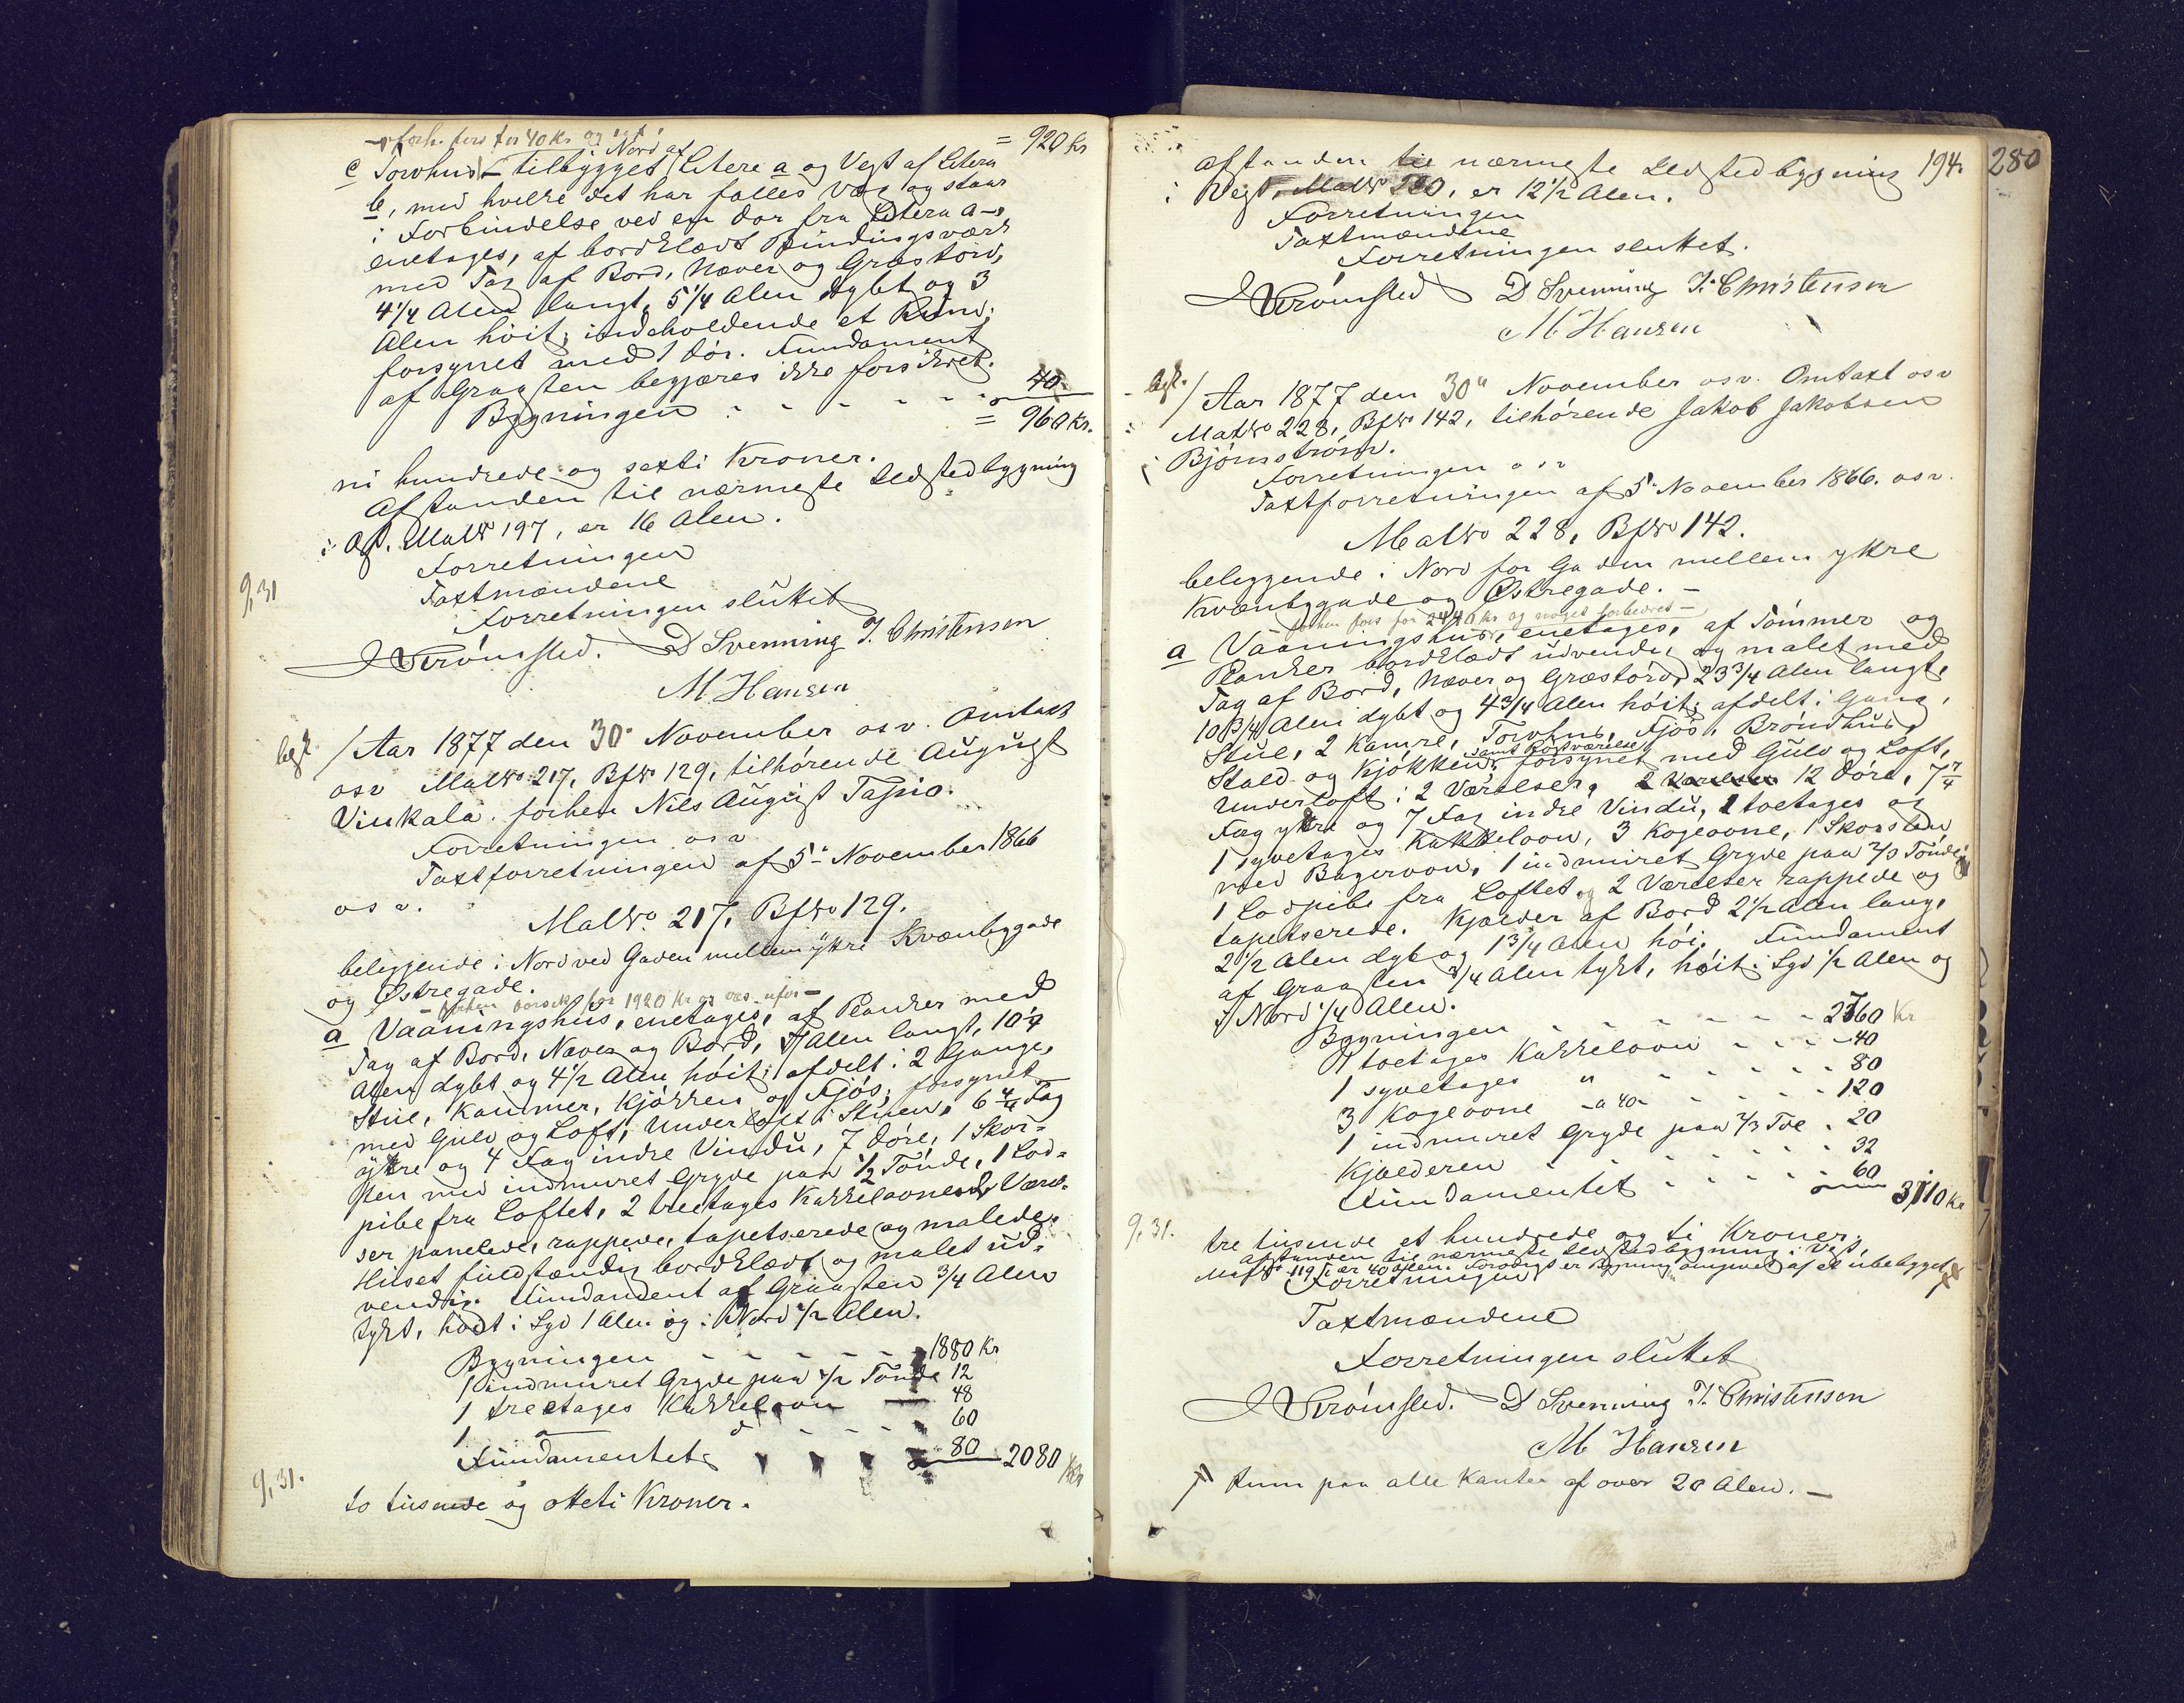 = 920 kr
forh. fors for 40 Kr og
Nord af
c Torvhus tilbygget Litera a og Vest af Litera
b, med hvilke det har fælles Væg og staar
i Forbindelse ved en Dør fra Litera a –
enetages, af bordklædt Bindingsværk
med Tag af Bord, Næver og Græstørv,
4 1/4 Alen langt, 5 1/4 Alen dybt og 3
Alen høit; indeholdende et Rum;
forsynet med 1 Dør. Fundament
af Graasten begjæres ikke forsikret.
Bygningen - - - - - 40
= 960 Kr.
ni hundrede og sexti Kroner.
Afstanden til nærmeste Ildstedbygning
i Øst, MatNo 197, er 16 Alen.
Forretningen
9,31
Taxtmændene
Forretningen sluttet
Strømsted. D Svenning J. Christensen
M Hansen
begt. / Aar 1877 den 30 November osv. Omtaxt
osv MatNo 217, BfNo 129, tilhørende August
Vinkala. forhen Nils August Tajnio.
Forretningen osv
Taxtforretningen af 5 November 1866
osv.
MatNo 217, BfNo 129.
beliggende i Nord ved Gaden mellem ytre Kvænbygade
og Østregade.
forhen forsik for 1920 Kr og
a Vaaningshus, enetages, af Planker med
Tag af Bord, Næver og Bord, Alen langt, 10 1/4
Alen dybt og 4 1/2 Alen høit; afdelt i 2 Gange,
Stue, Kammer, Kjøkken og Fjøs; forsynet
med Gulv og Loft, Underloft i Stuen, 6 4/4 Fag
ytre og 4 Fag indre Vindu, 7 Døre, 1 Skor-
sten med indmuret Gryde paa 1/2 Tønde, 1 Lod-
pibe fra Loftet, 2 treetages Kakkelovne 2 Værel-
ser panelede, rappede, tapetserede og malede.
Huset fuldstændig bordklædt og malet ud-
vendig. Fundament af Graasten 3/4 Alen
tykt, høit i Syd 1 Alen og i Nord 1/2 Alen.
Bygningen - - - - - 1880 Kr
1 indmuret Gryde paa 1/2 Tønde 12
1 treetages Kakkelovn 48
1 - d - - - 60
Fundamentet 80 2080 Kr
9,31.
to tusende og otteti Kroner.
194. 280
Afstanden til nærmeste Ildstedbygning
i Vest, MatNo, er 12 1/2 Alen.
Forretningen
Taxtmændene
Forretningen sluttet.
Strømsted D Svenning J. Christensen
M Hansen
begt. / Aar 1877 den 30 November osv. Omtaxt osv
MatNo 228, BfNo 142, tilhørende Jakob Jakobsen
Bjørnstrøm.
Forretningen osv
Taxtforretningen af 5 November 1866. osv.
MatNo 228, BfNo 142.
beliggende i Nord for Gaden mellem ytre
Kvænbygade og Østregade. –
forhen fors for 2440 Kr og noget forbedret –
a Vaaningshus, enetages, af Tømmer og
Planker bordklædt udvendig og malet med
Tag af Bord, Næver og Græstørv, 23 3/4 Alen langt,
10 3/4 Alen dybt og 4 3/4 Alen høit; afdelt i Gang,
Stue, 2 Kamre, Torvhus, Fjøs, Brøndhus,
Stald og Kjøkken, samt forsynet med Gulv og Loft,
Underloft i 2 Værelser, 12 Døre, 7 7/4
Fag ytre og 7 Fag indre Vindu, 1 toetages og
1 syvetages Kakkelovn, 3 Kogeovne, 1 Skorsten
med Bagerovn, 1 indmuret Gryde paa 2/3 Tønde,
1 Lodpibe fra Loftet, og 2 Værelser rappede og
tapetserede. Kjælder af Bord 2 1/2 Alen lang,
2 1/2 Alen dyb og 1 3/4 Alen høi. Fundament
af Graasten 3/4 Alen tykt, høit i Syd 1/2 Alen og
i Nord 1/4 Alen.
Bygningen - - - - - 2760 Kr
1 toetages Kakkelovn - - - 40
1 syvetages " - - - - 80
3 Kogeovne - a 40 - - - 120
1 indmuret Gryde paa 2/3 Tde - 20
Kjælderen - - - - - 32
Fundamentet - - - - 60 3110 Kr
9,31.
tre tusende et hundrede og ti Kroner.
Afstanden til nærmeste Ildstedbygning i Vest,
MatNo 119 er 40 Alen. Forøvrigt er Bygningen omgivet af et ubebygget
Forretningen
Taxtmændene
Forretningen sluttet
Strømsted. D Svenning J. Christensen
M Hansen
Rum paa alle Kanter af over 20 Alen. –